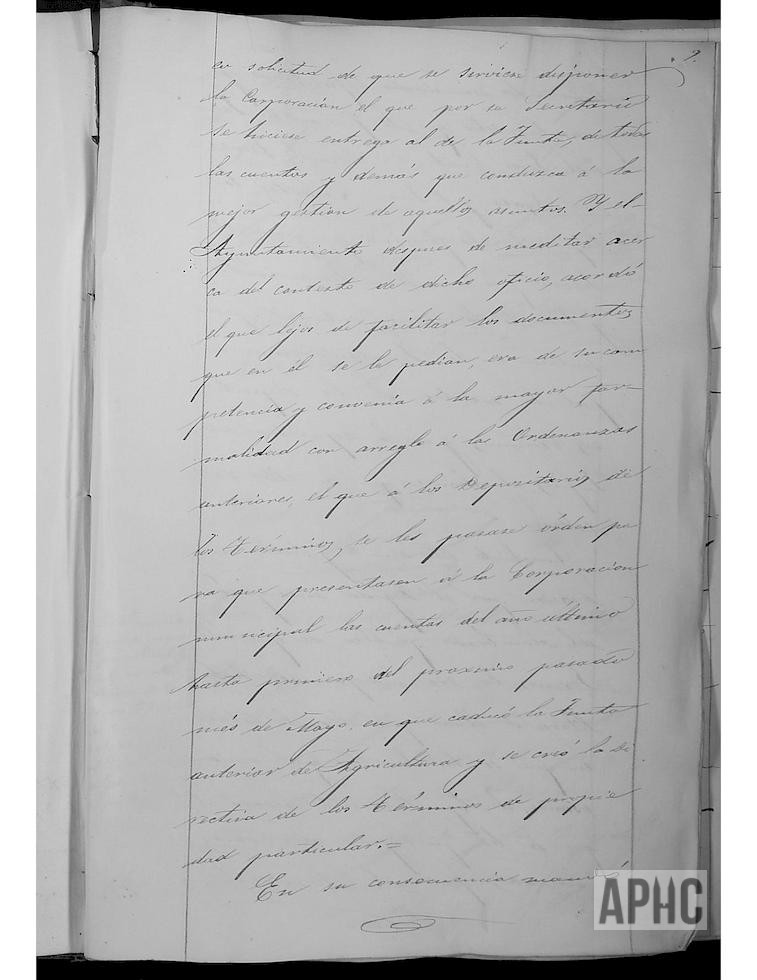 9.
en solicitud de que se sirviese disponer
la Corporacion el que por su Secretario
se hiciese entrega al de la Junta, de todas
las cuentas y demás que conduzca á la
mejor gestion de aquellos asuntos. Y el
Ayuntamiento despues de meditar acer
ca del contesto de dicho oficio, acordó
el que lejos de facilitar los documentos
que en él se le pedian, era de su com
petencia y convenia á la mayor for-
malidad con arreglo á las Ordenanzas
anteriores, el que á los Depositarios de
los términos, se les pasase órden pa
ra que presentasen á la Corporacion
municipal las cuentas del año último
hasta primero del proximo pasado
més de Mayo, en que caducó la Junta
anterior de Agricultura y se creó la Di
rectiva de los términos de propie
dad particular.=
En su consecuencia mandó
APHC